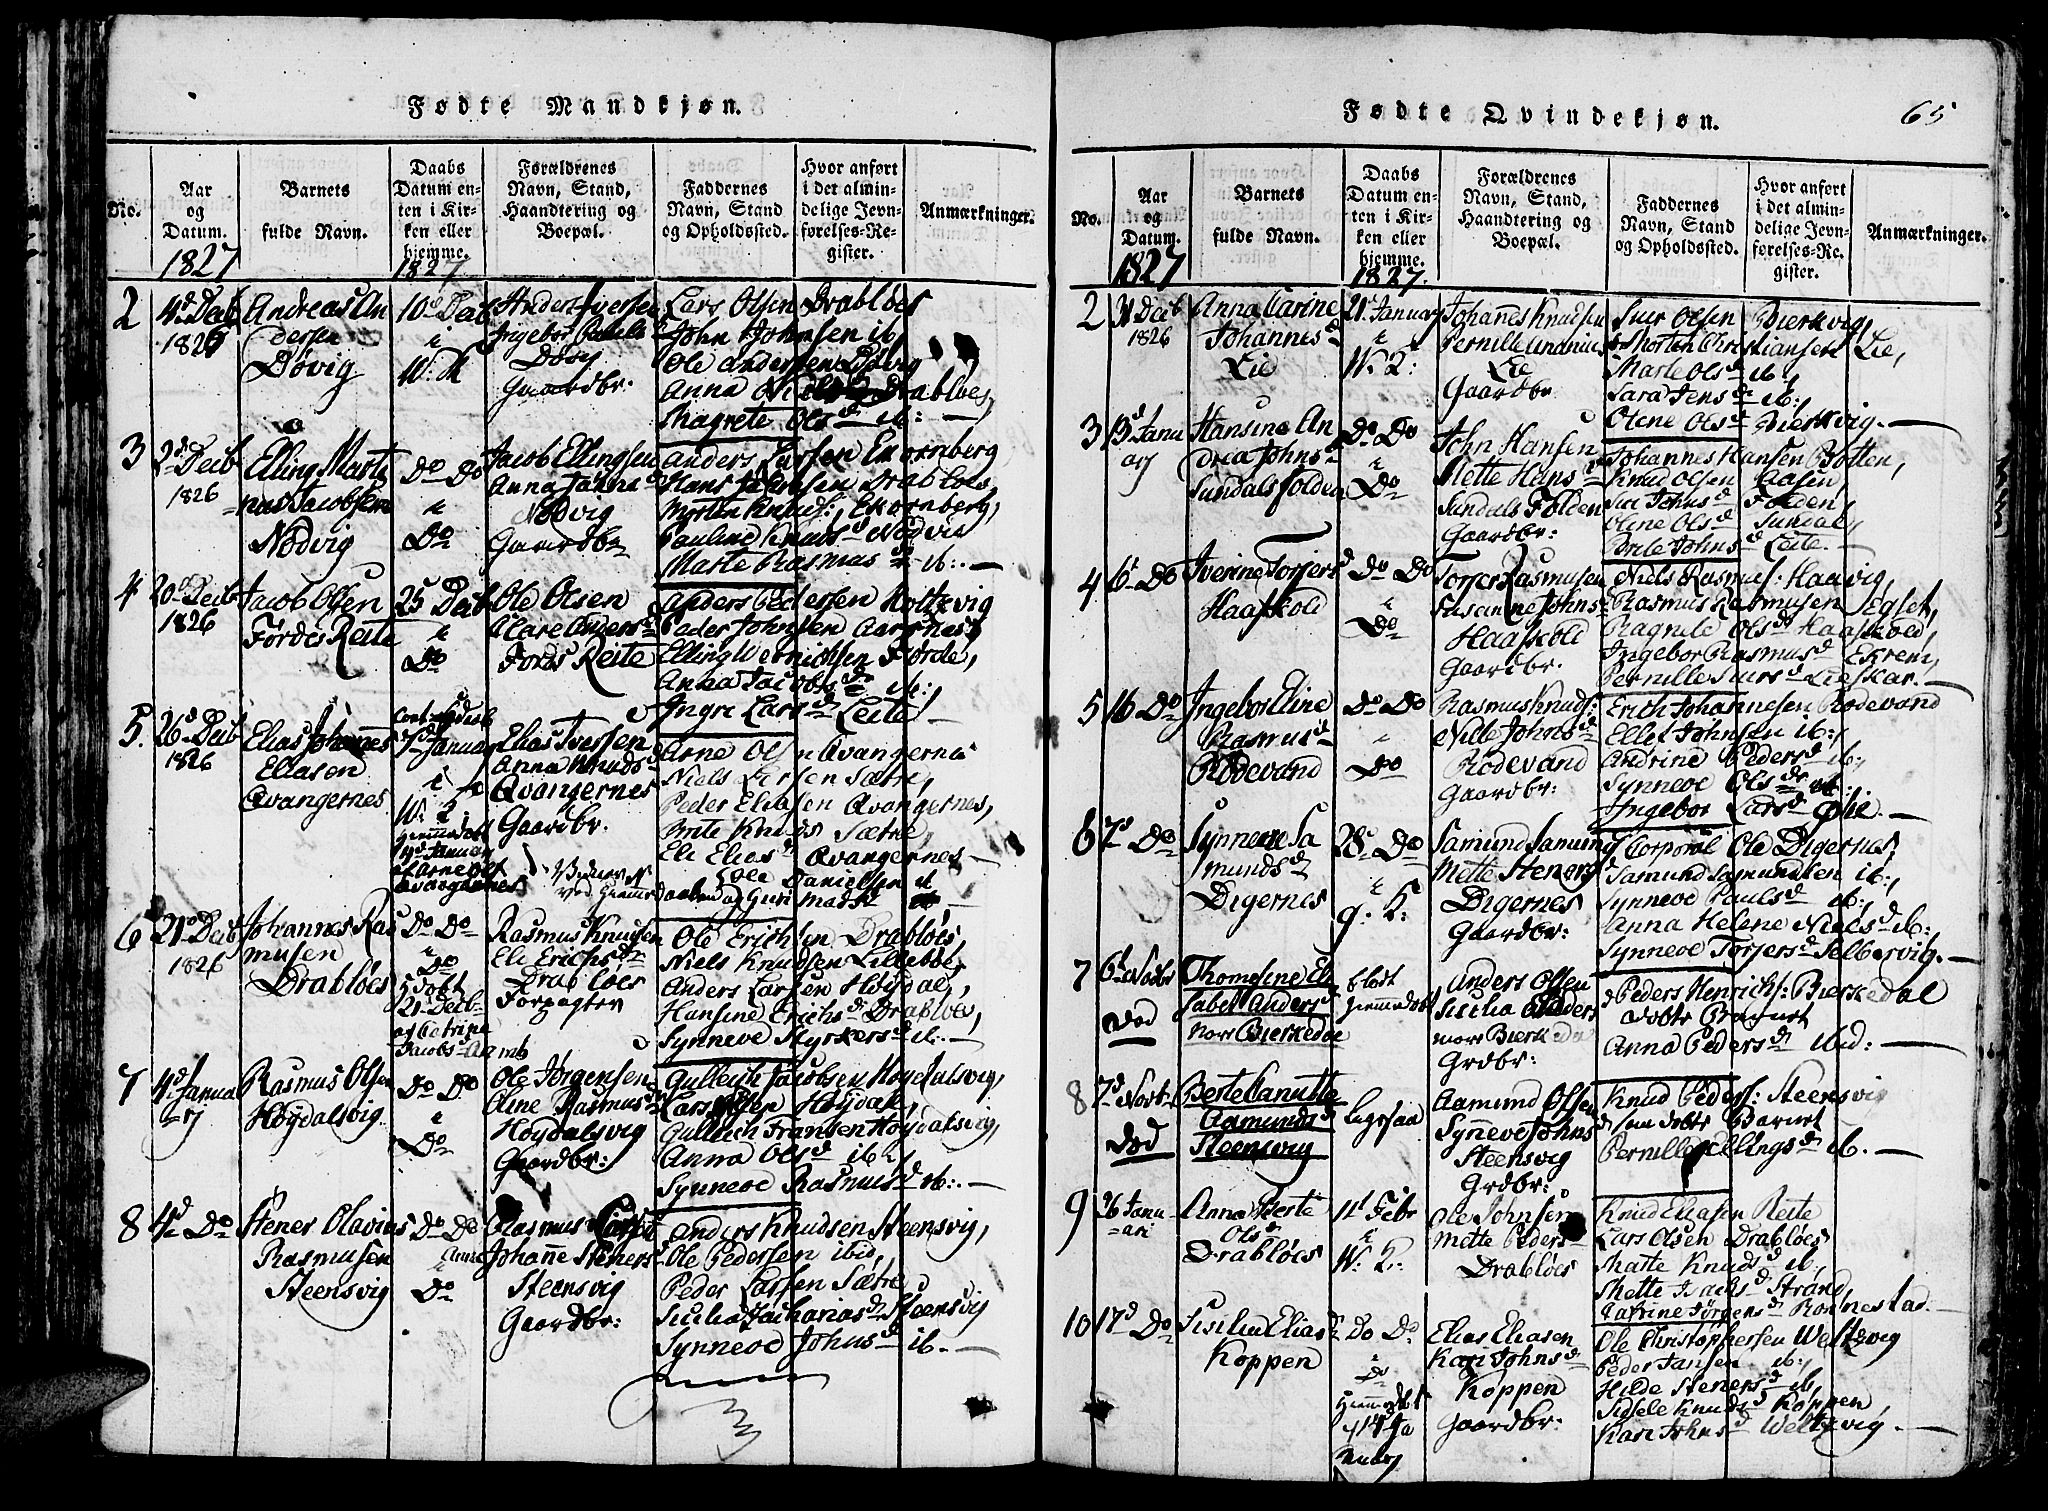 Fødte Mandkjøn.
No.
Aar og Datum.
Barnets fulde Navn.
Daabs Datum enten i Kirken eller hjemme.
Forældrenes Navn, Stand, Haandtering og Boepæl.
Faddernes Navn, Stand og Opholdssted.
Hvor anført i det almindelige Jevnførelses-Register.
Anmærkninger.
1827
1827
2
4d Decb 1826
Andreas Andersen
Døvig
10de Decb
i
W. K
Anders Iversen
Ingebor
Gaardbr.
Lars Olsen Drabløes
John Johnsen ib,
Ole Andersen Døvig
Anna Drabløes,
Magrete Olsd ib: —
3
2d Decb
1826
Elling Martinus Jacobsen
Nødvig
Do Do
i
Do
Jacob Ellingsen
Anna
Nødvig
Gaardbr
Anders Larsen Ekornberg
Hans Jensen Drabløes,
Morten Knuds: Ekornberg,
Pauline Knuds Nødvig
Marte Rasmusd ib. —
4
20d Decb
1826
Jacob Olsen
Førdes Reite
25 Decb
i
Do
Ole Olsen
Førdes Reite
Anders Pedersen Holtzvig
Peder Johnsen Aarsnes,
Elling Wernichsen Førde,
Anna Jacobsd ib:
Ingri Larsd Leite —
5.
26d Decb
1826
Elias Johannes
Eliasen
Qvangernes
7d Januar
i
W. K
Hjemmedøbt
Januar
af Arne Ols
Qvangernes
Elias Iversen
Anna Knudsd
Qvangernes
Gaardbr.
Arne Olsen Qvangernes
Niels Larsen Sætre,
Peder Eliasen Qvangernes,
Brite Knuds Sætre,
Eli Eliasd Qvangernes —
Ole Danielsen ib
6
21d Decb
1826
Johannes Rasmusen
Drabløes
Do Do
i
Do
Døbt
21d Decb
af Catrine
Jacobs
Rasmus Knudsen
Eli Erichsd
Drabløes
Forpagter
Ole Erichsen Drabløes,
Niels Knudsen Lillebøe,
Anders Larsen Høydal,
Hansine Erichsd Drabløes,
Synneve Styrkersd ib. —
7
4d Januarj
Rasmus Olsen
Høydalsvig
Do Do
i
Do
Ole Jørgensen
Aline Rasmusd
Høydalsvig
Gaardbr:
Gulleich Jacobsen Høydalsvig,
Lars Olsen Høydal,
Gulleich Fransen Høydalsvig,
Anna Olsd ib
Synneve Rasmusd ib: —
8
4d Do
Stener Olavius
Rasmusen
Steensvig
Do Do
i
Do
Rasmus Larsen
Johanne Steners
Steensvig
Gaardbr:
Anders Knudsen Steensvig,
Ole Pedersen ibid,
Peder Larsen Sætre
Sicilia Zachariasd Steensvig
Synneve Johnsd ib. —
Fødte Qvindekjøn.
65
No.
Aar og Datum.
Barnets fulde Navn.
Daabs Datum enten i Kirken eller hjemme.
Forældrenes Navn, Stand, Haandtering og Boepæl.
Faddernes Navn, Stand og Opholdssted.
Hvor anført i det almindelige Jevnførelses-Register.
Anmærkninger.
1827
1827.
2
31 Decb
1826
Anna Carine
Johannesd
Lie
21 Januarj
i
W. K:
Johannes Knudsen
Pernille
Lie
Gaardbr
Siur Olsen Bierkvig,
Morten Christiansen Lie,
Marte Olsd ib,
Sara Jensd ib.
Olene Olsd Bierkvig. —
3
13d Januarj
Hansine Andrea Johnsd
Sundalsfolden
Do Do
i
Do
John Hansen
Mette Hansd
Sundals Folden
Gaardbr:
Johannes Hansen Botten,
Knud Olsen Aasen,
Siri Johnsd Folden,
Olene Olsd Sundal,
Brite Johnsd Leite. —
4
6d Do
Iverine Torgersd
Haaskold
Do Do
i
Do
Torger Rasmusen
Susanne Johnsd
Haaskold
Gaardbr.
Niels Rasmus: Haavig,
Rasmus Rasmusen Egset,
Ragnile Olsd Haaskold,
Ingebor Rasmusd Ekrem,
Pernille Siursd Lieskar. —
5
16 Do
Ingebor Eline
Rasmusd
Rødevand
Do Do
i
Do
Rasmus Knuds:
Nille Johnsd
Rødevand
Gaardbr:
Erich Johannesen Rødevand
Elling Johnsen ib:,
Andrine Pedersd ib:,
Synneve Olsd ib,
Ingebor Larsd Øie. —
6
7d Do
Synneve Samundsd
Digernes
28d Do
i
Q. K:
Samund Samund
Mette Steners
Digernes
Gaardbr:
Corporal Ole Digernes,
Samund Samundsen ib:,
Synneve Paulsd ib:,
Anna Helene Nielsd ib:
Synneve Torgersd Selbervig. —
7
6d Novbr
død
Thomsine Elisabet Anders
Nors Bierkedal
blot
hjemmedøbt
Anders Olsen
Sicilia Pedersd
Nors Bierkedal
Grdbr:
Peders Henrichs: Bierkedal
døbte Barnet
Anna Pedersd ibid: —
8
7d Novb
død
Berte Canutte
Aamundsd
Steensvig
Ligesaa
Aamund Olsen
Synneve Johnsd
Steensvig
Grdbr:
Knud Peders: Steensvig
som døbte Barnet
Pernille Ellingsd ib. —
9
26 Januari
Anna Berte
Olsd
Drabløes
11d Febr
i
W. K:
Ole Johnsen
Mette Pedersd
Drabløes
Knud Eliasen Reite
Lars Olsen Drabløes
Matte Knudsd ib,
Mette Isachsd Strand,
Catrine Jørgensd Rønnestad —
10
17d Do
Siselia Eliasd
Koppen
Do Do
i
Do
Hjemmedøbt
Januarj
Elias Eliasen
Kari Johnsd
Koppen
Gaardbr:
Ole Christophersen Weltzvig
Peder Jansen ib:,
Hilde Stenersd ib,
Sidsele Knudsd Koppen,
Kari Johnsd Weltzvig —